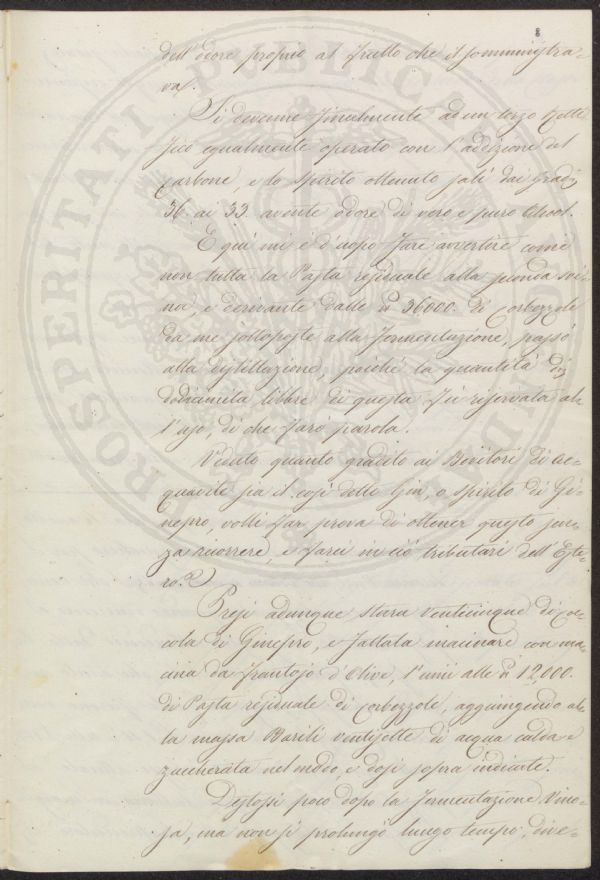 8
dell'odore proprio al frutto che il somministra-
va.
Si devenne finalmente ad un terzo rettì
fico egualmente operato con l'addizione del
carbone, e lo spirito ottenuto salì dai gradi
36. ai 33. avente odore di vero e puro Alcool.
E quì mi è d'uopo fare avvertire come
non tutta la Pasta residuale alla seconda vi-
na, e derivante dalle ₶ 36000. di Corbezzole
da me sottoposte alla fermentazione, passò
alla distillazione, poiché la quantità di
dodicimila libbre di questa fu riservata al-
l'uso, di che farò parola.
Veduto quanto gradito ai Bevitori di Ac-
quavite sia il così detto Gin, o spirito di Gi-
nepro, volli far prova di ottener questo sen-
za ricorrere, e farci in ciò tributari dell'Este-
ro.
Presi adunque staia venticinque di Coc-
cola di Ginepro, e fattala macinare con ma-
cina da frantojo d'Olive, l'unii alle ₶ 12,000.
di Pasta residuale di Corbezzole, aggiungendo al-
la massa Barili ventisette di acqua calda e
zuccherata nel modo, e dosi sopra indicate.
Destossi poco dopo la fermentazione Vino-
sa, ma non si prolungò lungo tempo, dive-
PROSPERITATI PUBLICAE